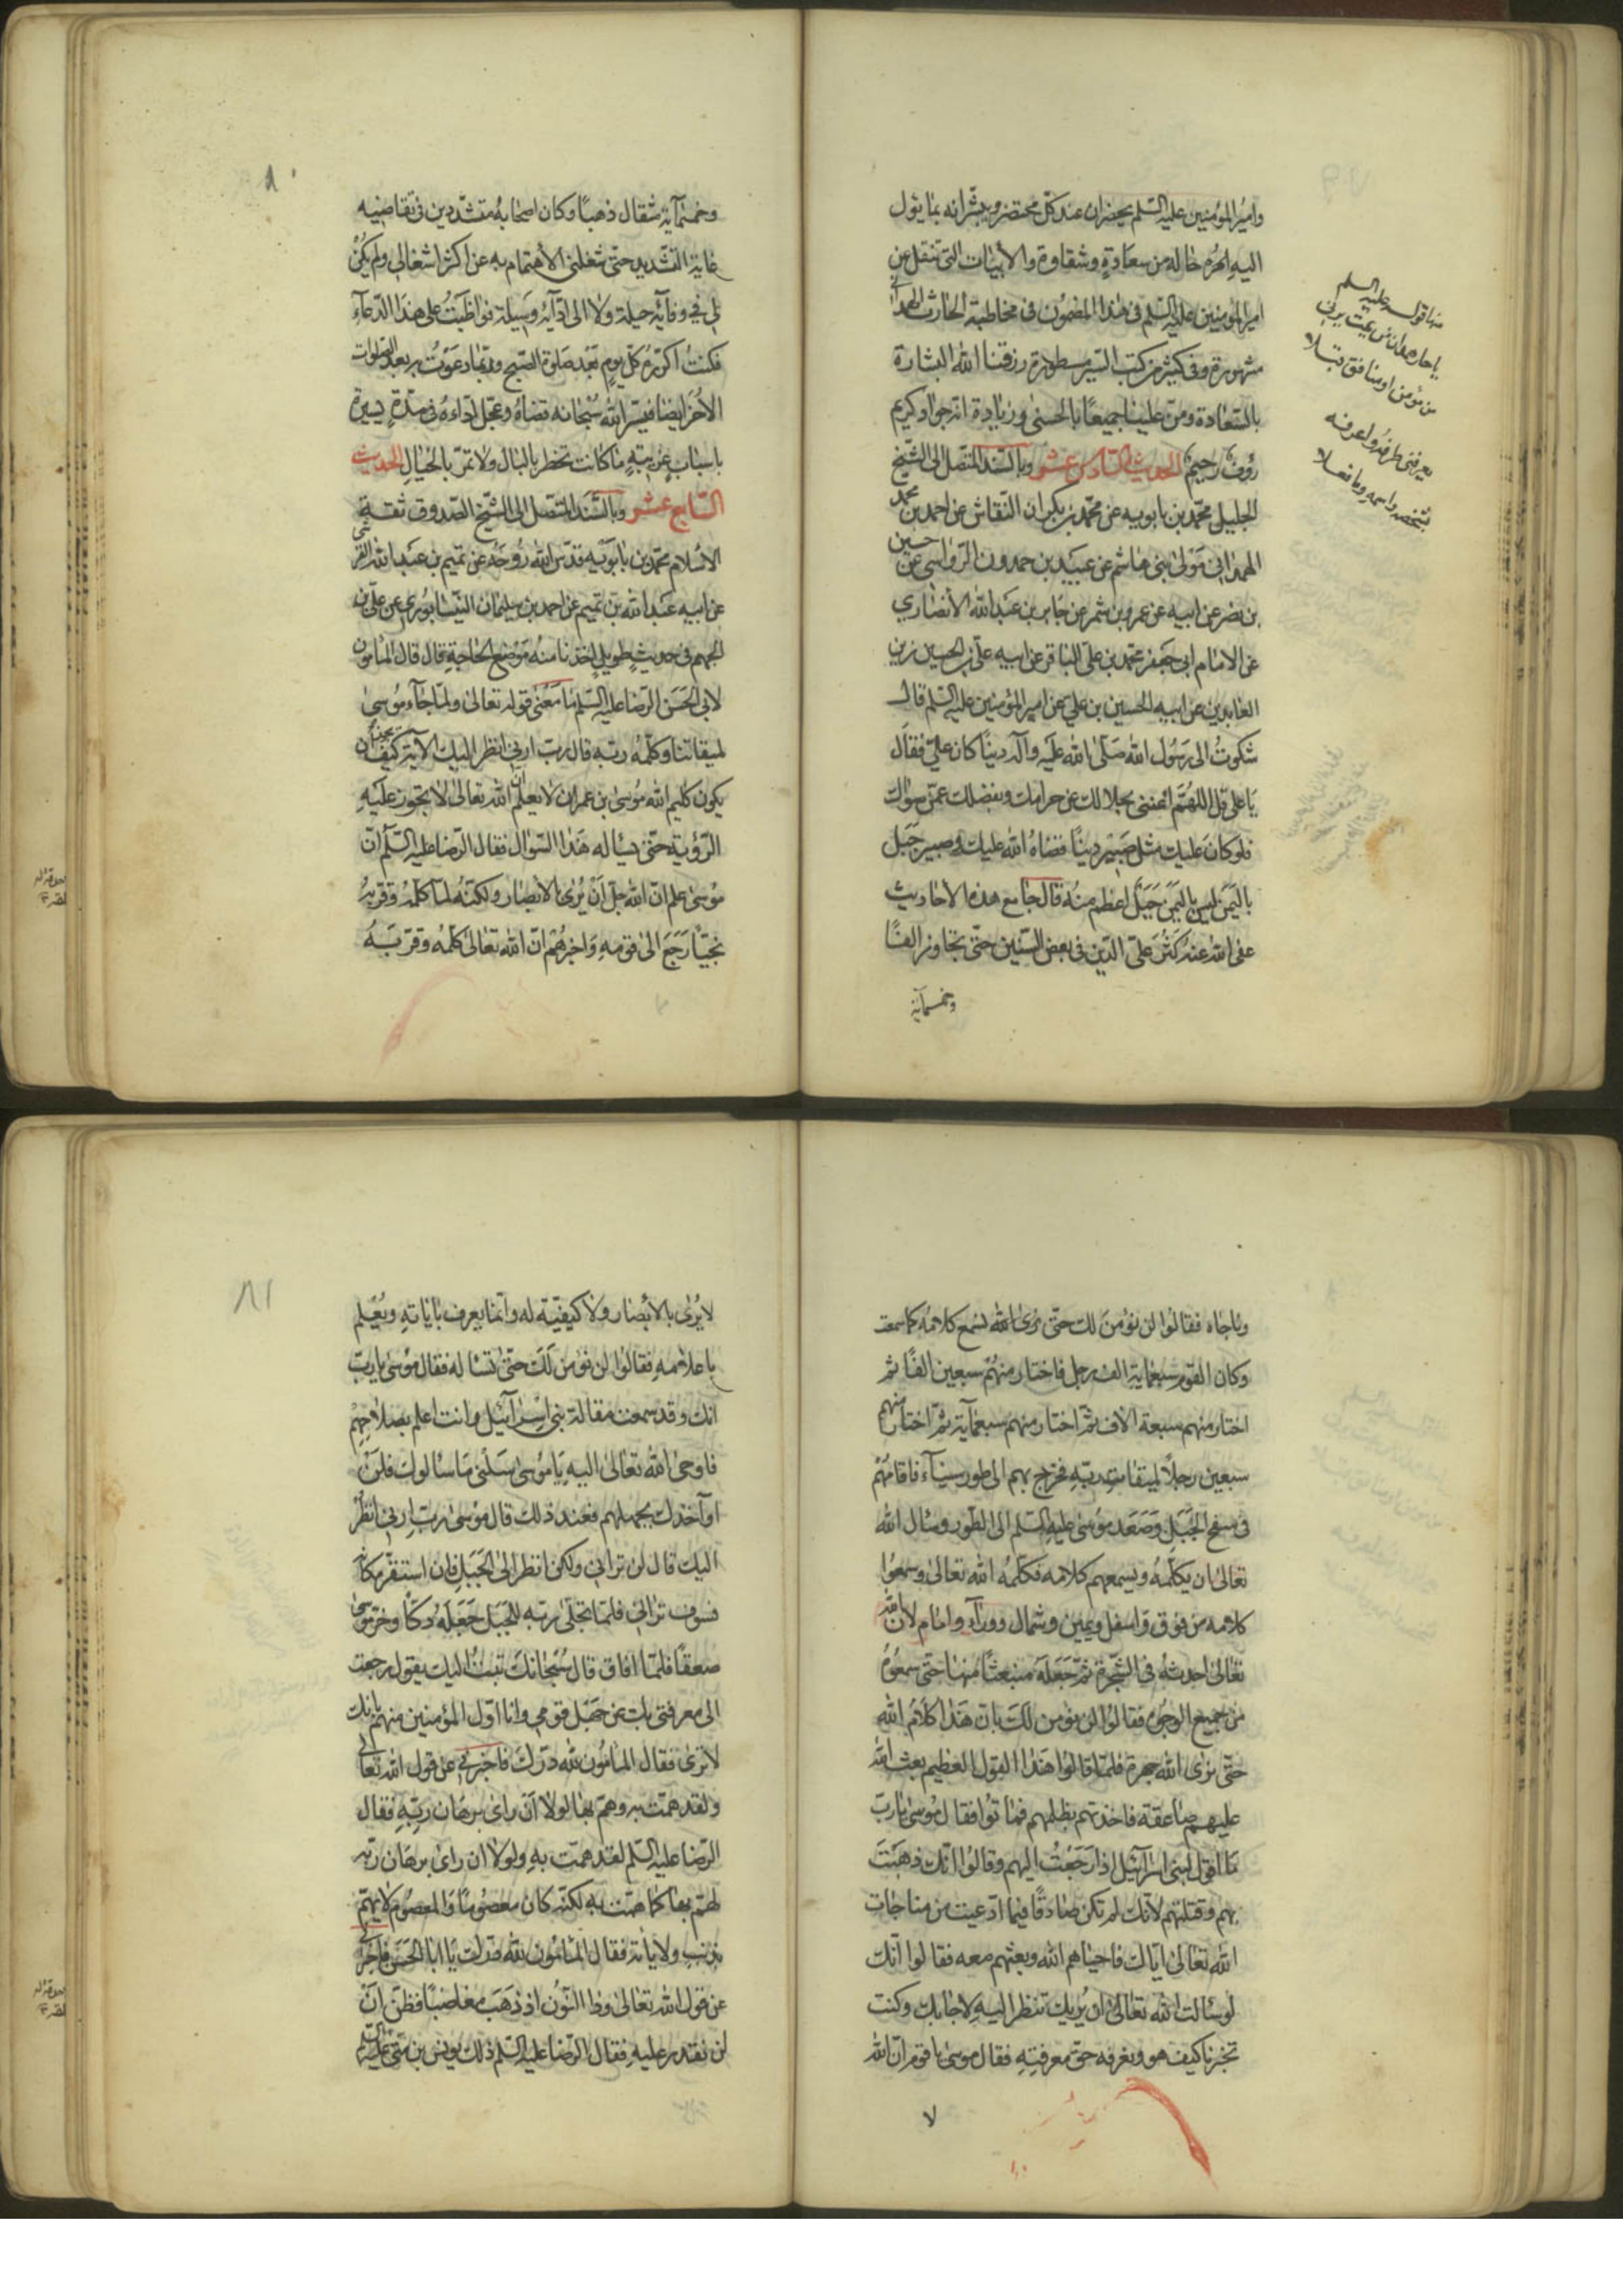 وامير المؤمنين عليه السلم يحضران عند كل محتضر ويبشرانه بما يئول
اليه امره حاله من سعادة وشقاوة والأبيات التي تنقل عن
امير المؤمنين عليه السلم في هذا المضمون في مخاطبة الحارث الهمداني
مشهورة وفي كثير من كتب السير مسطورة رزقنا الله البشارة
بالسعادة ومن علينا جميعا بالحسنى وزيادة انه جواد كريم
رؤف رحيم الحديث السادس عشر وبالسند المتصل الى الشيخ
الجليل محمد بن بابويه عن محمد بن بكران النقاش عن احمد بن محمد
الهمداني مولى بني هاشم عن عبيد بن حمدون الرواسي عن حسين
بن نضر عن ابيه عن عمرو بن شمر عن جابر بن عبد الله الأنصاري
عن الامام ابي جعفر محمد بن علي الباقر عن ابيه علي بن الحسين زين
العابدين عن ابيه الحسين بن علي عن امير المؤمنين عليه السلم قال
شكوت الى رسول الله صلى الله عليه وآله دينا كان علي فقال
يا علي قل اللهم اغنني بحلالك عن حرامك وبفضلك عمن سواك
فلو كان عليك مثل صبير دينا قضاه الله عليك وصبير جبل
باليمن ليس باليمن جبل اعظم منه قال جامع هذه الأحاديث
عفى الله عنه كثر علي الدين في بعض السنين حتى تجاوز الفا
وخمسمائة
منها قوله عليه السلم
يا حار همدان من يمت يرني
من مؤمن او منافق قبلا
يعرفني طرفه واعرفه
بشخصه واسمه وما فعلا
٨٠
وخمسمآية مثقال ذهبا وكان اصحابه متشددين في تقاضيه
غاية التشديد حتى شغلني الأهتمام به عن اكثر اشغالي ولم يكن
لي في وفائه حيلة ولا الى ادآئه وسيلة فواظبت على هذا الدعآء
فكنت اكرره كل يوم بعد صلوة الصبح وربما دعوت به بعد الصلوات
الأخر ايضا فيسر الله سبحانه قضاه وعجل اداءه في مدة يسيرة
باسباب غريبة ما كانت تخطر بالبال ولا تمر بالخيال الحديث
السابع عشر وبالسند المتصل الى الشيخ الصدوق ثقة
الاسلام محمد بن بابويه قدس الله روحه عن تميم بن عبد الله القرشي
عن ابيه عبد الله بن تميم عن احمد بن سليمان النيسابوري عن علي بن
الجهم في حديث طويل اخذنا منه موضع الحاجة قال قال المأمون
لابي الحسن الرضا عليه السلم ما معنى قوله تعالى ولما جآء موسى
لميقاتنا وكلمه ربه قال رب ارني انظر اليك الآية كيف يجوز ان
يكون كليم الله موسى بن عمران لا يعلم ان الله تعالى لا يجوز عليه
الرؤية حتى يسأله هذا السؤال فقال الرضا عليه السلم ان
موسى علم ان الله جل ان يرى بالابصار ولكنه لما كلمه وقربه
نجيا رجع الى قومه واخبرهم ان الله تعالى كلمه وقربه
وناجاه فقالوا لن نؤمن لك حتى نسمع كلامه كما سمعت
وكان القوم سبعماية الف رجل فاختار منهم سبعين الفا ثم
اختار منهم سبعة الاف ثم اختار منهم سبعمآية ثم اختار منهم
سبعين رجلا لميقات ربه فخرج بهم الى طور سيناء فاقامهم
في سفح الجبل وصعد موسى عليه السلم الى الطور وسأل الله
تعالى ان يكلمه ويسمعهم كلامه فكلمه الله تعالى وسمعوا
كلامه من فوق واسفل ويمين وشمال وورآء وامام لان الله
تعالى احدثه في الشجرة ثم جعله منبعثا منها حتى سمعوه
من جميع الوجوه فقالوا لن نؤمن لك بان هذا كلام الله
حتى نرى الله جهرة فلما قالوا هذا القول العظيم بعث الله
عليهم صاعقة فاخذتهم بظلمهم فماتوا فقال موسى يا رب
ما اقول لبني اسرآئيل اذا رجعت اليهم وقالوا انك ذهبت
بهم وقتلتهم لانك لم تكن صادقا فيما ادعيت من مناجات
الله تعالى اياك فاحياهم الله وبعثهم معه فقالوا انك
لو سألت الله تعالى ان يريك تنظر اليه لاجابك وكنت
تخبرنا كيف هو ونعرفه حق معرفته فقال موسى يا قوم ان الله
لا
٨١
لا يرى بالأبصار ولا كيفية له وانما يعرف باياته ويعلم
باعلامه فقالوا لن نؤمن لك حتى تسأله فقال موسى يا رب
انك قد سمعت مقالة بني اسرآئيل وانت اعلم بصلاحهم
فاوحى الله تعالى اليه يا موسى سلني ما سألوك فلن
اوآخذك بجهلهم فعند ذلك قال موسى رب ارني انظر
اليك قال لن تراني ولكن انظر الى الجبل فان استقر مكانه
فسوف تراني فلما تجلى ربه للجبل جعله دكا وخر موسى
صعقا فلما افاق قال سبحانك تبت اليك يقول رجعت
الى معرفتي بك عن جهل قومي وانا اول المؤمنين منهم بانك
لا ترى فقال المأمون لله درك فاخبرني عن قول الله تعالى
ولقد همت به وهم بها لولا ان راى برهان ربه فقال
الرضا عليه السلم لقد همت به ولولا ان راى برهان ربه
لهم بها كما همت به لكنه كان معصوما والمعصوم لا يهم
بذنب ولا ياته فقال المأمون لله درك يا ابا الحسن فاخبرني
عن قول الله تعالى وذا النون اذ ذهب مغاضبا فظن ان
لن نقدر عليه فقال الرضا عليه السلم ذلك يونس بن متى عليه السلم